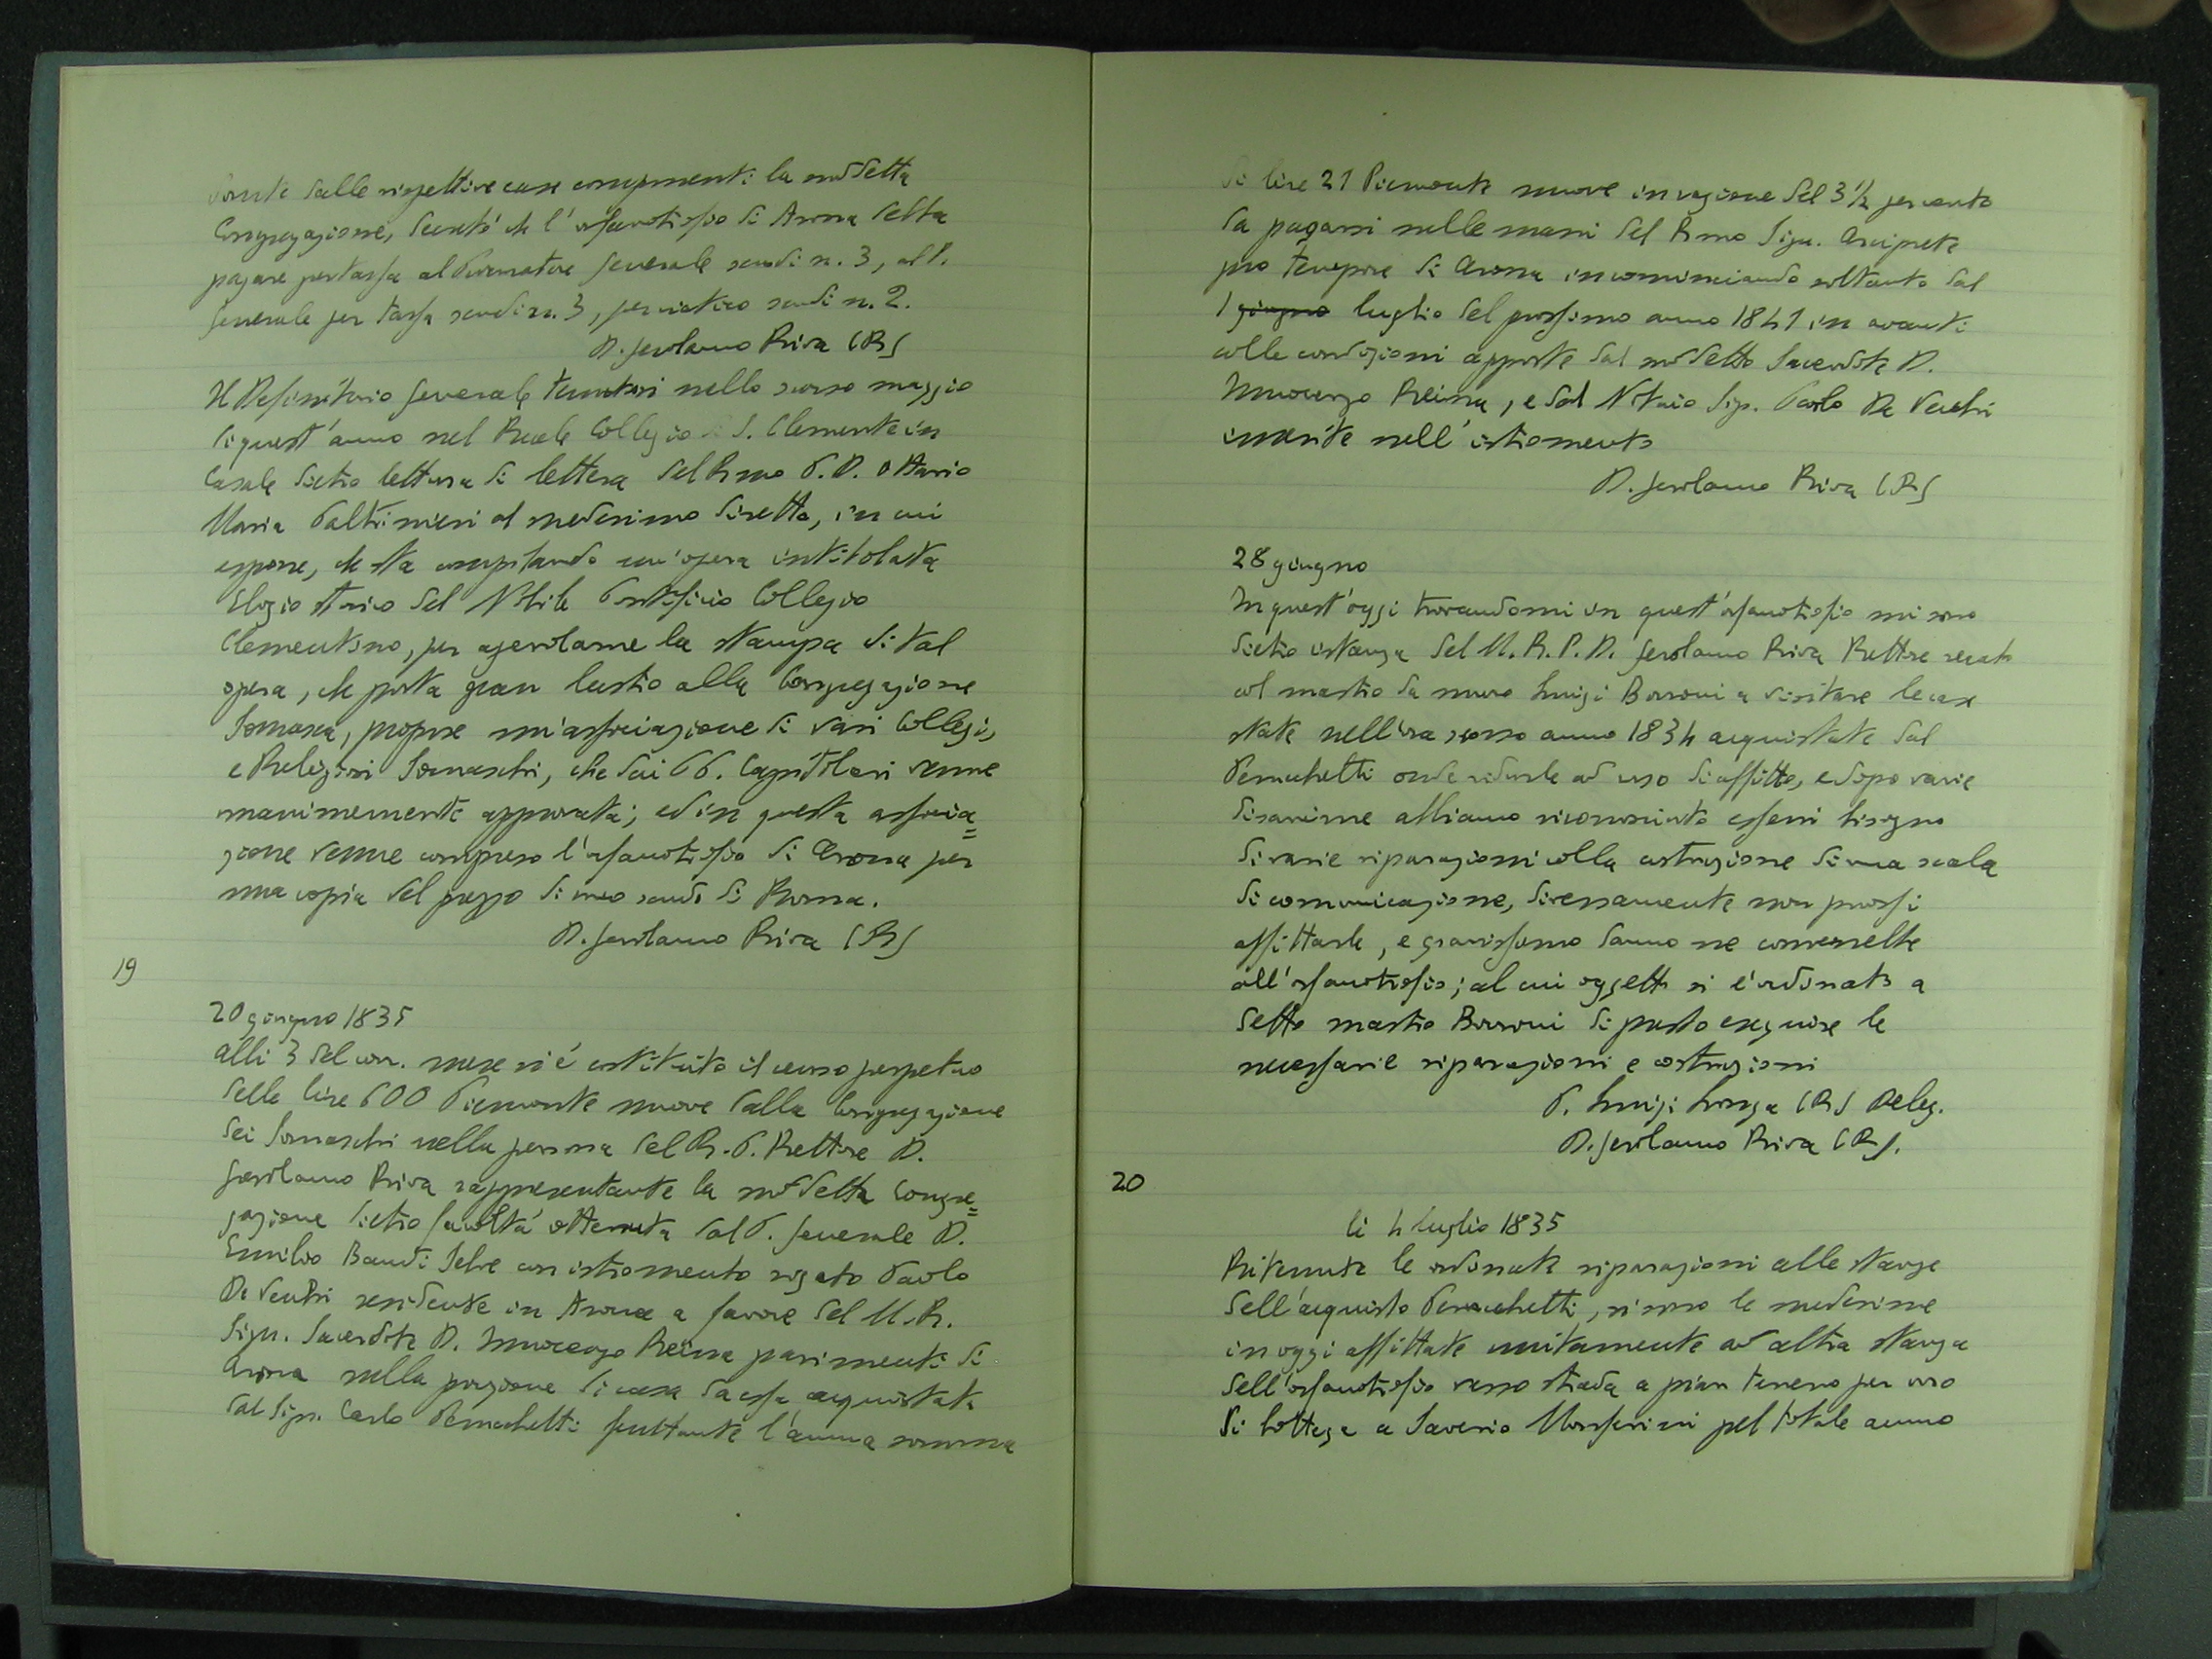 dovute dalle rispettive case componenti la suddetta
Congregazione, decretò che l'orfanotrofio di Arona debba
pagare per tassa al Procuratore generale scudi n. 3, al P.
generale per tassa scudi n. 3, per viatico scudi n. 2.
D. Gerolamo Riva CRS
Il Definitorio generale tenutosi nello scorso maggio
di quest'anno nel Reale Collegio di S. Clemente in
Casale dietro lettura di lettera del Rmo P. D. Ottavio
Maria Paltrinieri al medesimo diretta, in cui
espone, che sta compilando un'opera intitolata
Elogio storico del Nobile Pontificio Collegio
Clementino, per agevolarne la stampa di tal
opera, che porta gran lustro alla Congregazione
Somasca, propose un'associazione di vari Collegi,
e Religiosi Somaschi, che dai PP. Capitolari venne
unanimemente approvata; ed in questa associa=
zione venne compreso l'orfanotrofio di Arona per
una copia del prezzo di uno scudo di Roma.
D. Gerolamo Riva CRS
19
20 giugno 1835
alli 3 del corr. mese si è istituito il censo perpetuo
delle lire 600 Piemonte nuove dalla Congregazione
dei Somaschi nella persona del R. P. Rettore D.
Gerolamo Riva rappresentante la suddetta Congre=
gazione dietro facoltà ottenuta dal P. Generale D.
Emilio Baudi Selve con istromento rogato Paolo
De Vecchi residente in Arona a favore del M. R.
Sign. Sacerdote D. Innocenzo Reina parimenti di
Arona sulla porzione di casa da essa acquistata
dal Sign. Carlo Pernachetti fruttante l'annua somma
di lire 21 Piemonte nuove in ragione del 3½ per cento
da pagarsi nelle mani del Rmo Sign. Arciprete
pro tempore di Arona incominciando soltanto dal
1 giugno luglio del prossimo anno 1841 in avanti
colle condizioni apposte dal suddetto Sacerdote D.
Innocenzo Reina, e dal Notaio Sig. Paolo De Vecchi
inserite nell'istromento
D. Gerolamo Riva CRS
28 giugno
In quest'oggi trovandomi in quest'orfanotrofio mi sono
dietro istanza del M. R. P. D. Gerolamo Riva Rettore recato
col mastro da muro Luigi Borroni a visitare le case
state nell'ora scorso anno 1834 acquistate dal
Pernachetti onde ridurle ad uso di affitto, e dopo varie
disamine abbiamo riconosciuto esservi bisogno
di varie riparazioni colla costruzione di una scala
di comunicazione, diversamente non puossi
affittarle, e gravissimo danno ne converrebbe
all'orfanotrofio; al cui oggetto si è ordinato a
detto mastro Borroni di presto eseguire le
necessarie riparazioni e costruzioni
P. Luigi Longa CRS Deleg.
D. Gerolamo Riva CRS.
20
li 4 luglio 1835
Ritenute le ordinate riparazioni alle stanze
dell'acquisto Pernachetti, si sono le medesime
in oggi affittate unitamente ad altra stanza
dell'orfanotrofio verso strada a pian terreno per uso
di bottega a Saverio Monferini pel totale annuo